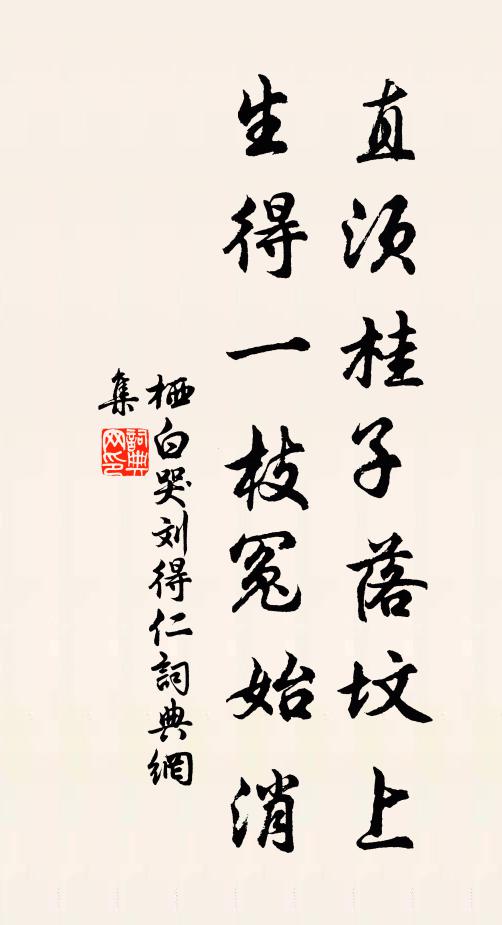 直须桂子落坟上
生得一枝冤始消
栖白哭刘得仁詞典網
集
詞典网印